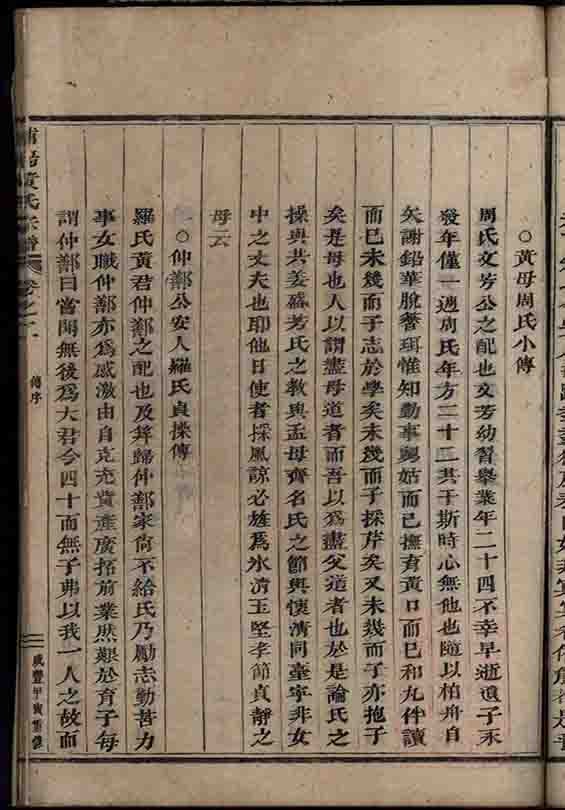 ○黃母周氏小傳
周氏文芳公之配也文芳幼習舉業年二十四不幸早逝遺子禾
發年僅一週周氏年方二十二共于斯時心無他也隨以柏舟自
矢謝鉛華脫簪珥惟知勤事舅姑而已撫育黃口而已和丸伴讀
而已未幾而子志於學矣未幾而子採芹矣又未幾而子亦抱子
矣是母也人以謂盡母道者而吾以為盡父道者也於是論氏之
操與共姜盛芳氏之教與孟母齊名氏之節與懷清同臺寧非女
中之丈夫也耶他日使者採風諒必旌為氷清玉堅孝節貞靜之
母云
○仲鄰公安人羅氏貞操傳
羅氏黃君仲鄰之配也及筓歸仲鄰家尙不給氏乃勵志勤苦力
事女職仲鄰亦為感激由自克充貲產廣拓前業然艱於育子每
謂仲鄰曰嘗聞無後為大君今四十而無子弗以我一人之故而
黃氏宗譜
卷之
傳序
咸豐甲寅重修